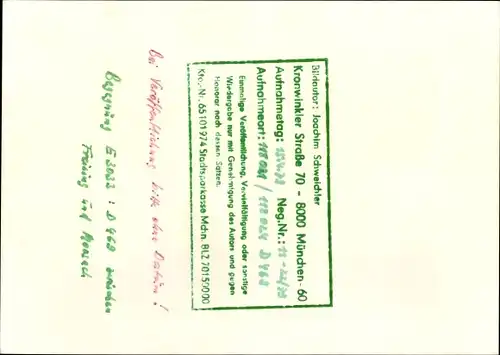 Bildautor: Joachim Schweichler
Kronwinkler Straße 70 - 8000 München-60
Aufnahmetag: Neg.Nr.:
Aufnahmeort: 118 024 / 118 024 D 468
Einmalige Veröffentlichung, Vervielfältigung oder sonstige
Wiedergabe nur mit Genehmigung des Autors und gegen
Honorar nach dessen Sätzen.
Kto.-Nr. 65 101974 Stadtsparkasse Mchn. BLZ 70150000
Bei Veröffentlichung bitte ohne Datum!
Begegnung E 3033 : D 468 zwischen
Freising und